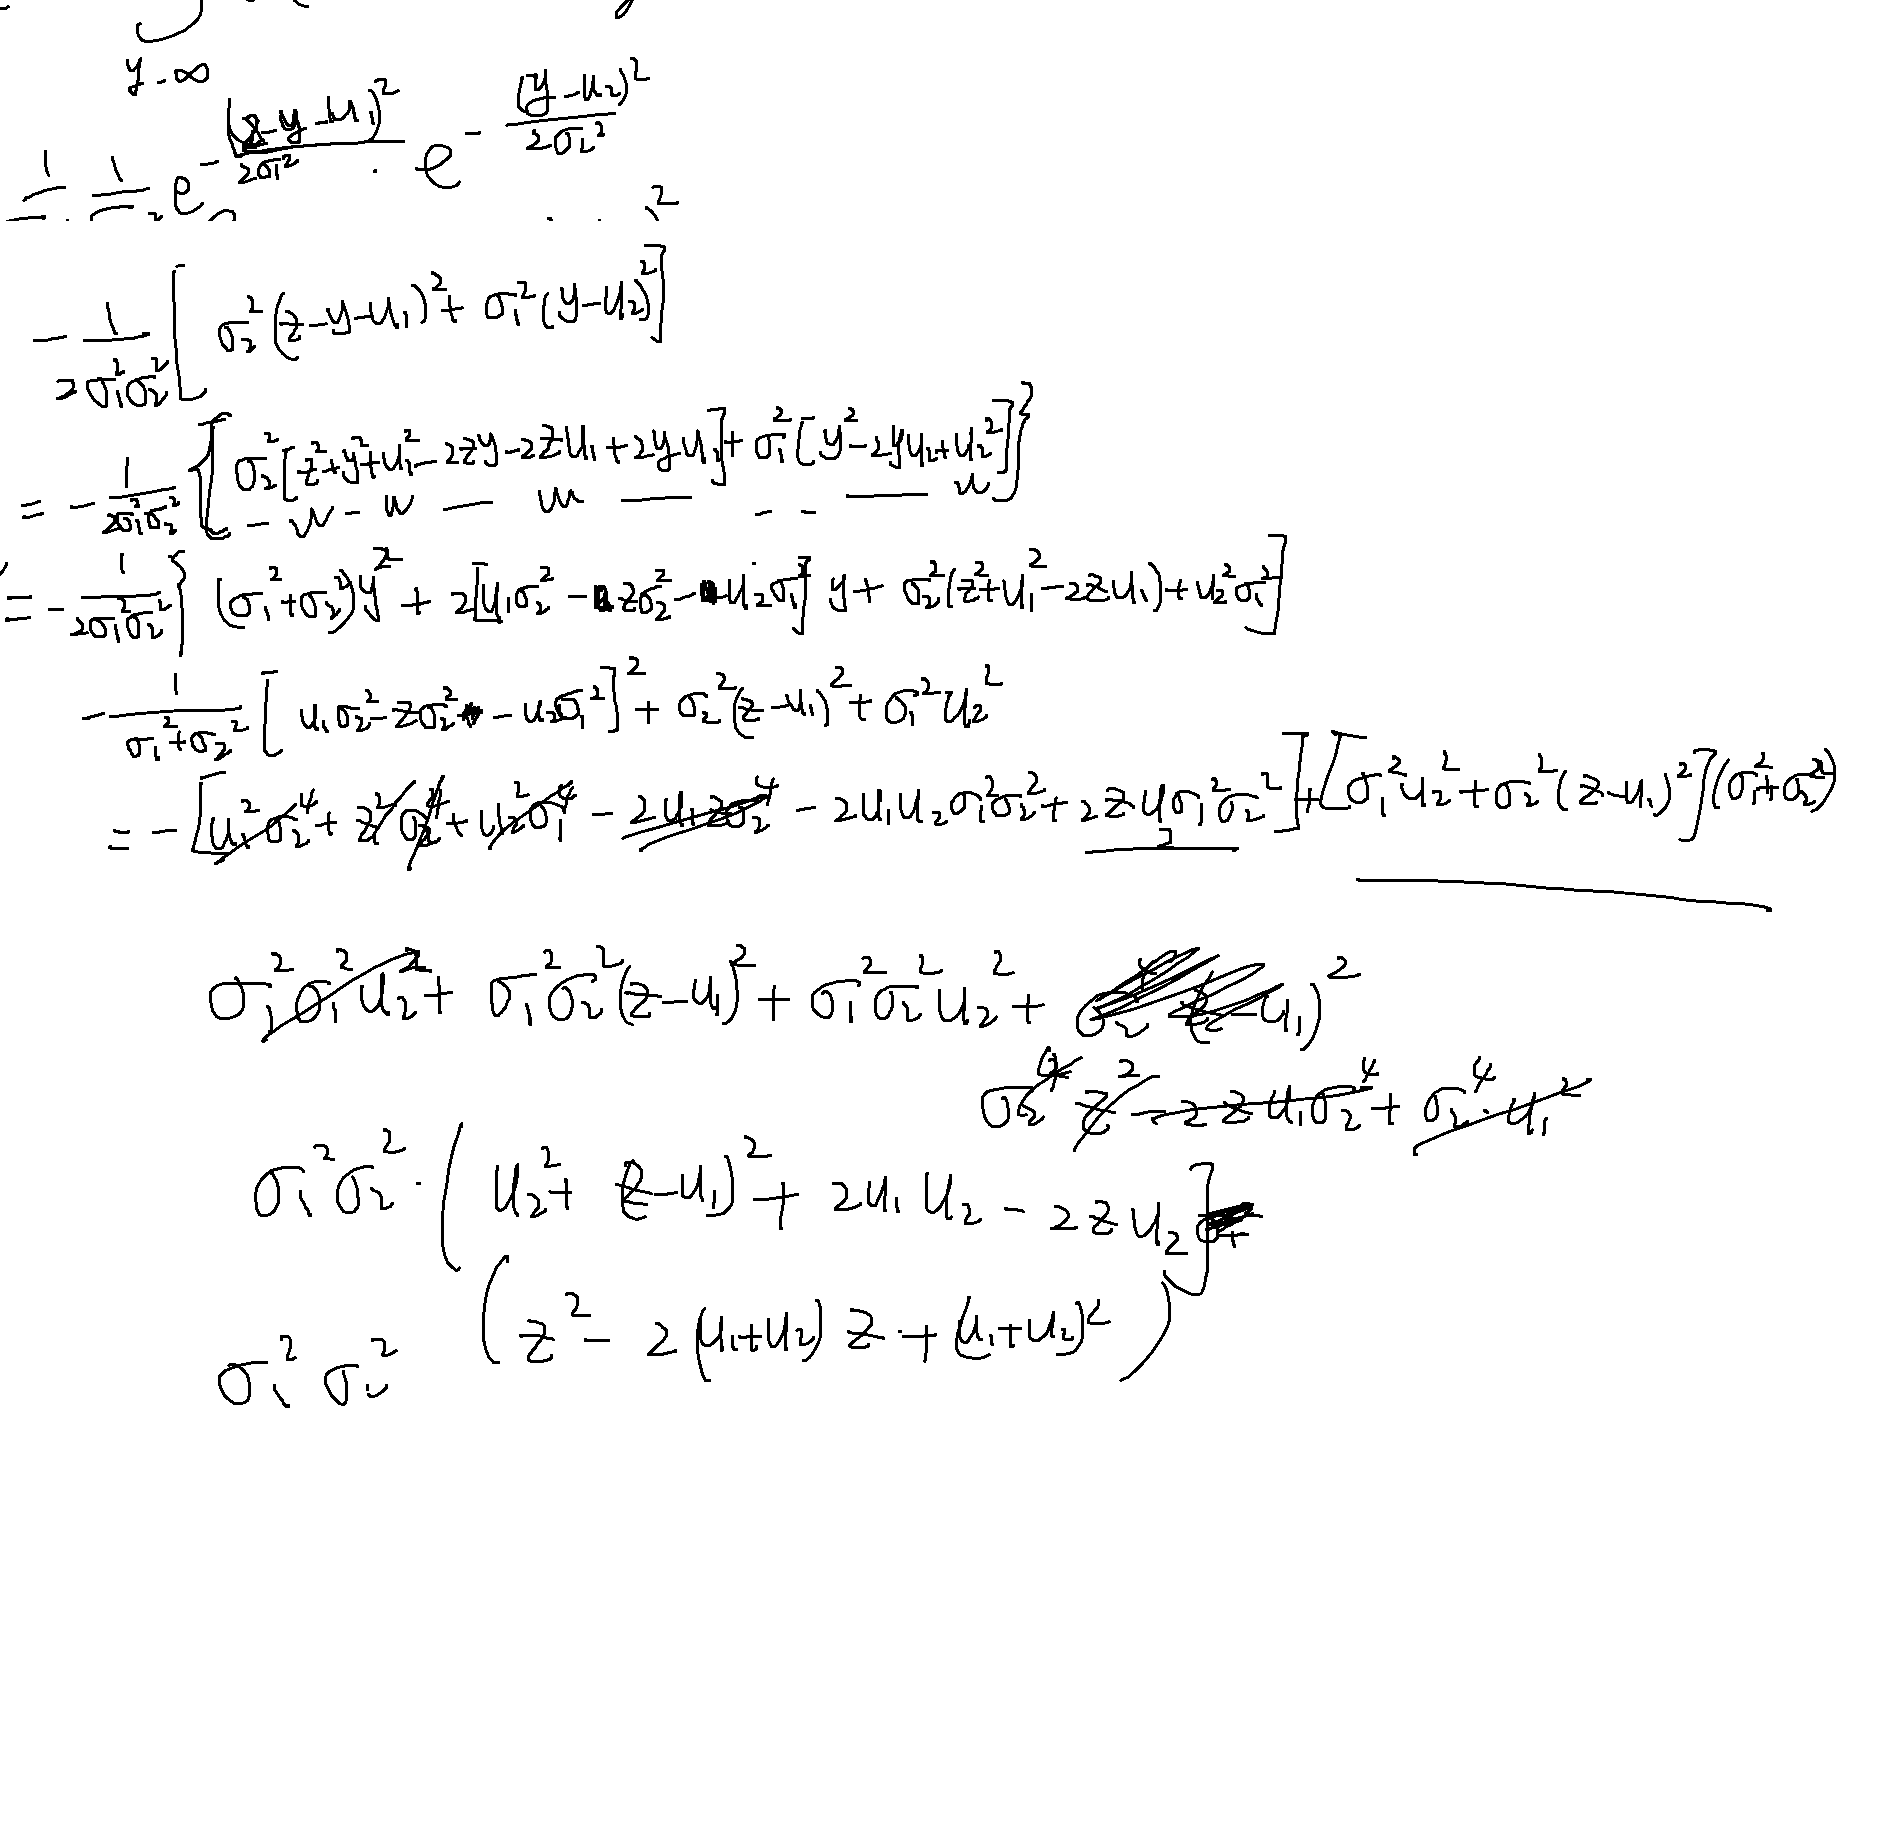 y -∞
1/ 1/ e^{-\frac{(z-y-u_1)^2}{2σ_1^2}} · e^{-\frac{(y-u_2)^2}{2σ_2^2}}
-\frac{1}{2σ_1^2σ_2^2} [ σ_2^2 (z-y-u_1)^2 + σ_1^2 (y-u_2)^2 ]
= -\frac{1}{2σ_1^2σ_2^2} { σ_2^2 [z^2+y^2+u_1^2-2zy-2zu_1+2yu_1] + σ_1^2 [y^2-2yu_2+u_2^2] }
= -\frac{1}{2σ_1^2σ_2^2} { (σ_1^2+σ_2^2)y^2 + 2[u_1σ_2^2 - zσ_2^2 - u_2σ_1^2] y + σ_2^2(z^2+u_1^2-2zu_1) + u_2^2σ_1^2 ]
-\frac{1}{σ_1^2+σ_2^2} [ u_1σ_2^2 - zσ_2^2 - u_2σ_1^2 ]^2 + σ_2^2 (z-u_1)^2 + σ_1^2 u_2^2
= - [ u_1^2σ_2^4 + z^2σ_2^4 + u_2^2σ_1^4 - 2u_1zσ_2^4 - 2u_1u_2σ_1^2σ_2^2 + 2zu_2σ_1^2σ_2^2 ] + [ σ_1^2u_2^2 + σ_2^2 (z-u_1)^2 ] (σ_1^2+σ_2^2)
σ_1^2σ_1^2u_2^2 + σ_1^2σ_2^2 (z-u_1)^2 + σ_1^2σ_2^2u_2^2 + σ_2^4 (z-u_1)^2
σ_2^4 z^2 - 2zu_1σ_2^4 + σ_2^4·u_1^2
σ_1^2σ_2^2 · ( u_2^2 + (z-u_1)^2 + 2u_1u_2 - 2zu_2 ]
σ_1^2 σ_2^2 ( z^2 - 2(u_1+u_2) z + (u_1+u_2)^2 )